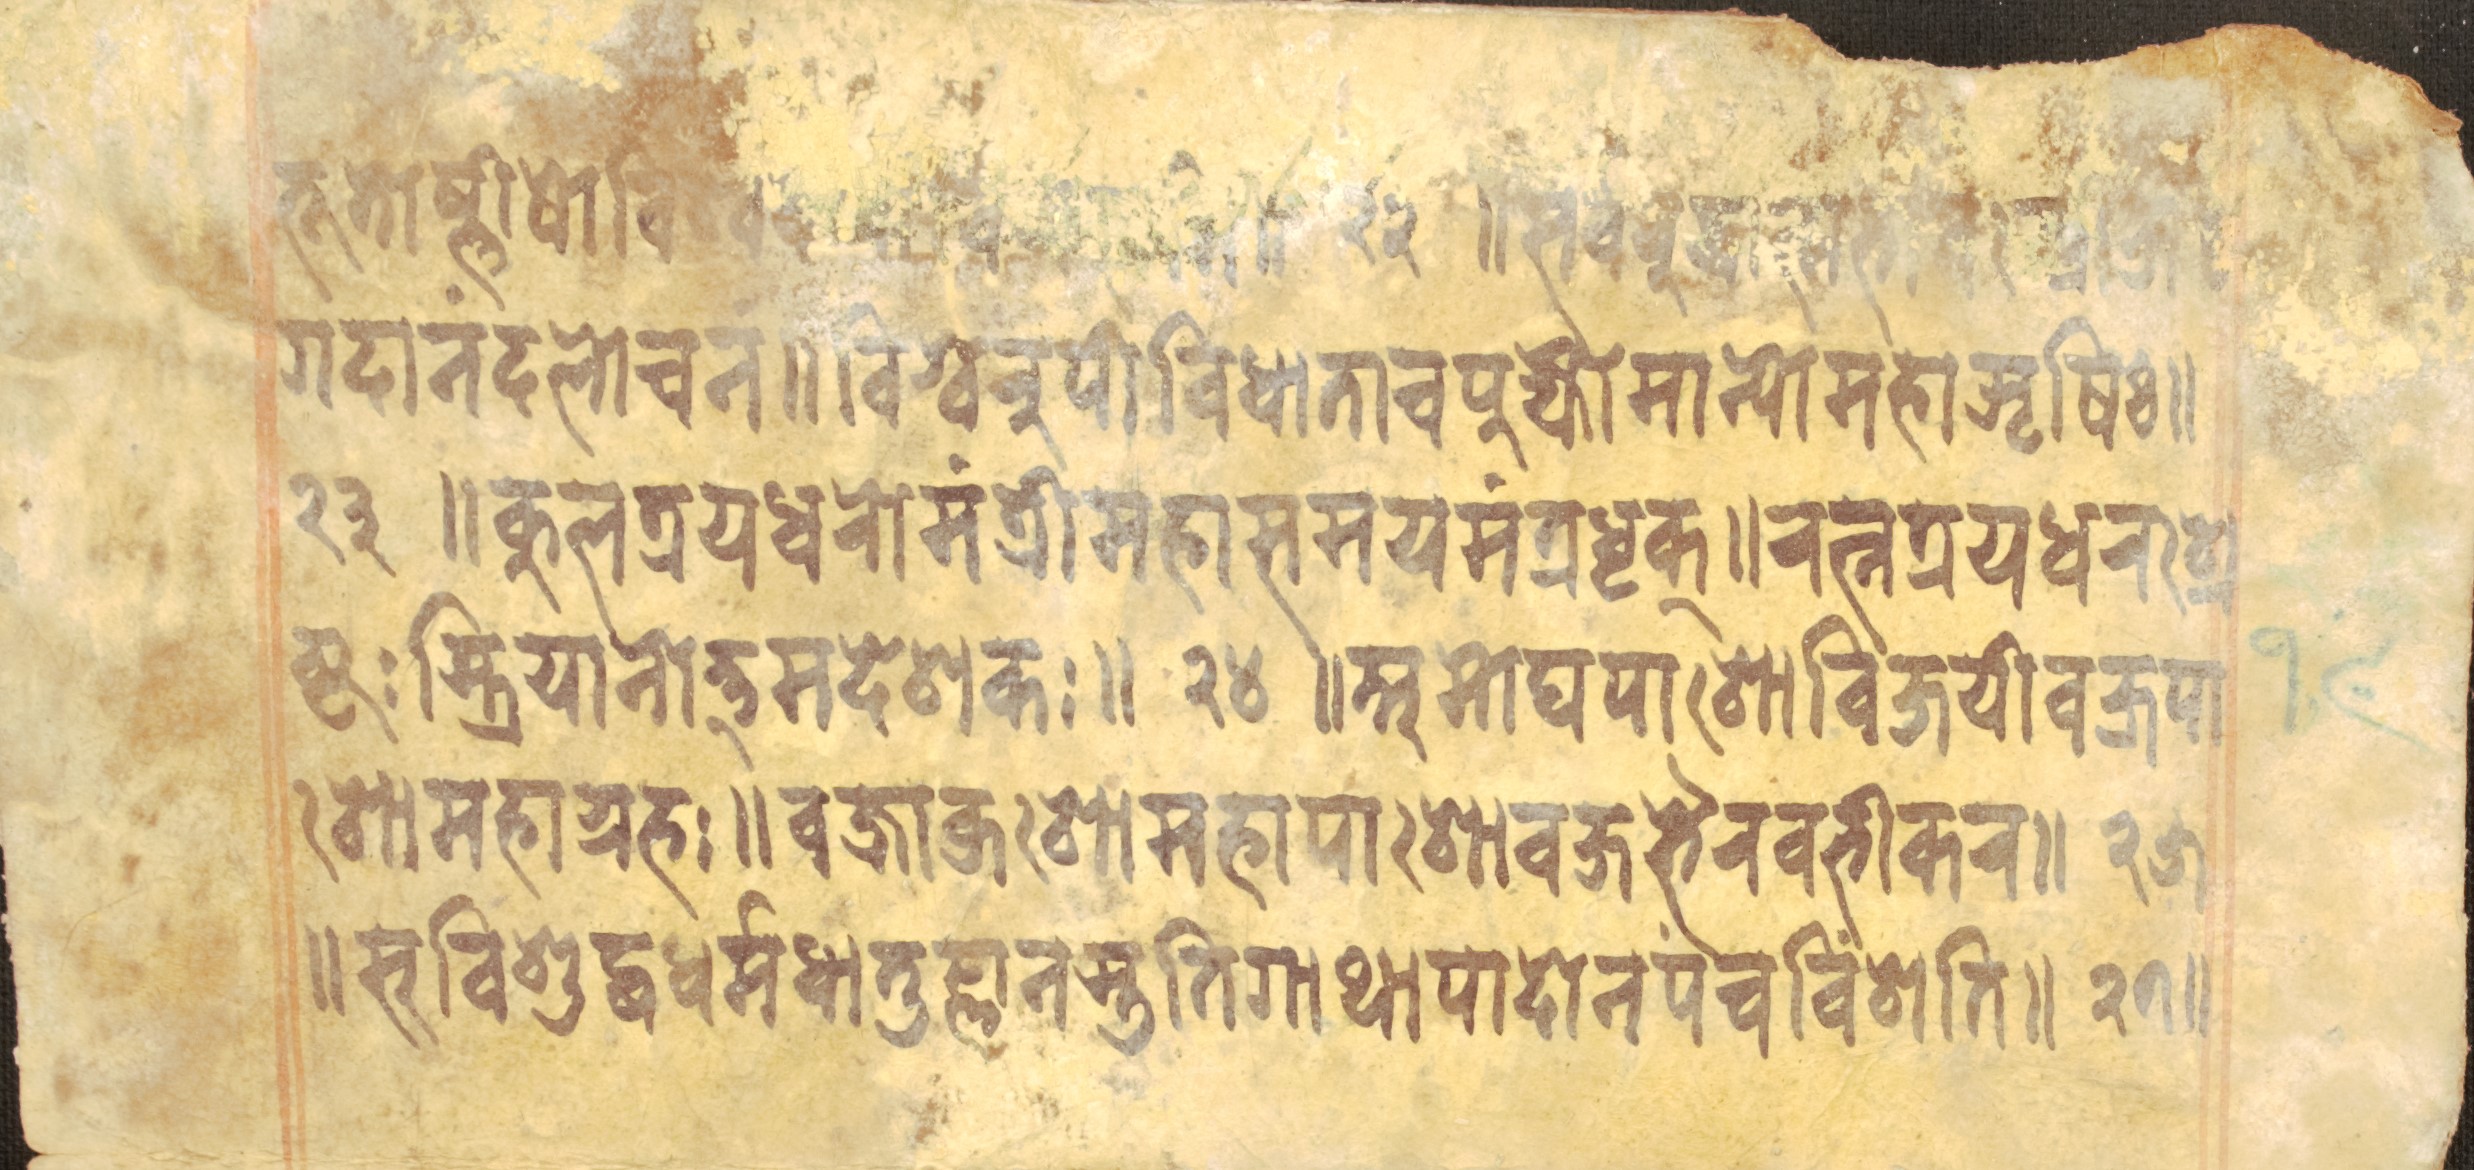 तृतोष्णीषोवि ॥ २२ ॥सर्वबुद्धात्म
गदानंदलोचन॥विश्वरुपीविधाताचपुज्योमान्योमहाऋषिः॥
२३ ॥कुलत्रयधरोमंत्रीमहासमयमंत्रधृक्॥रत्नत्रयधरश्रे
ष्टः स्त्रियानोत्तमदेशकः॥ २४ ॥अमोघपाशोविजयीवज्रपा
शोमहाग्रहः॥वज्राकुशोमहापाशोवज्रभैरवभीकर॥ २५
॥सुविशुद्धधर्मधातुज्ञानस्तुतिगाथापादोनपंचविंशति॥